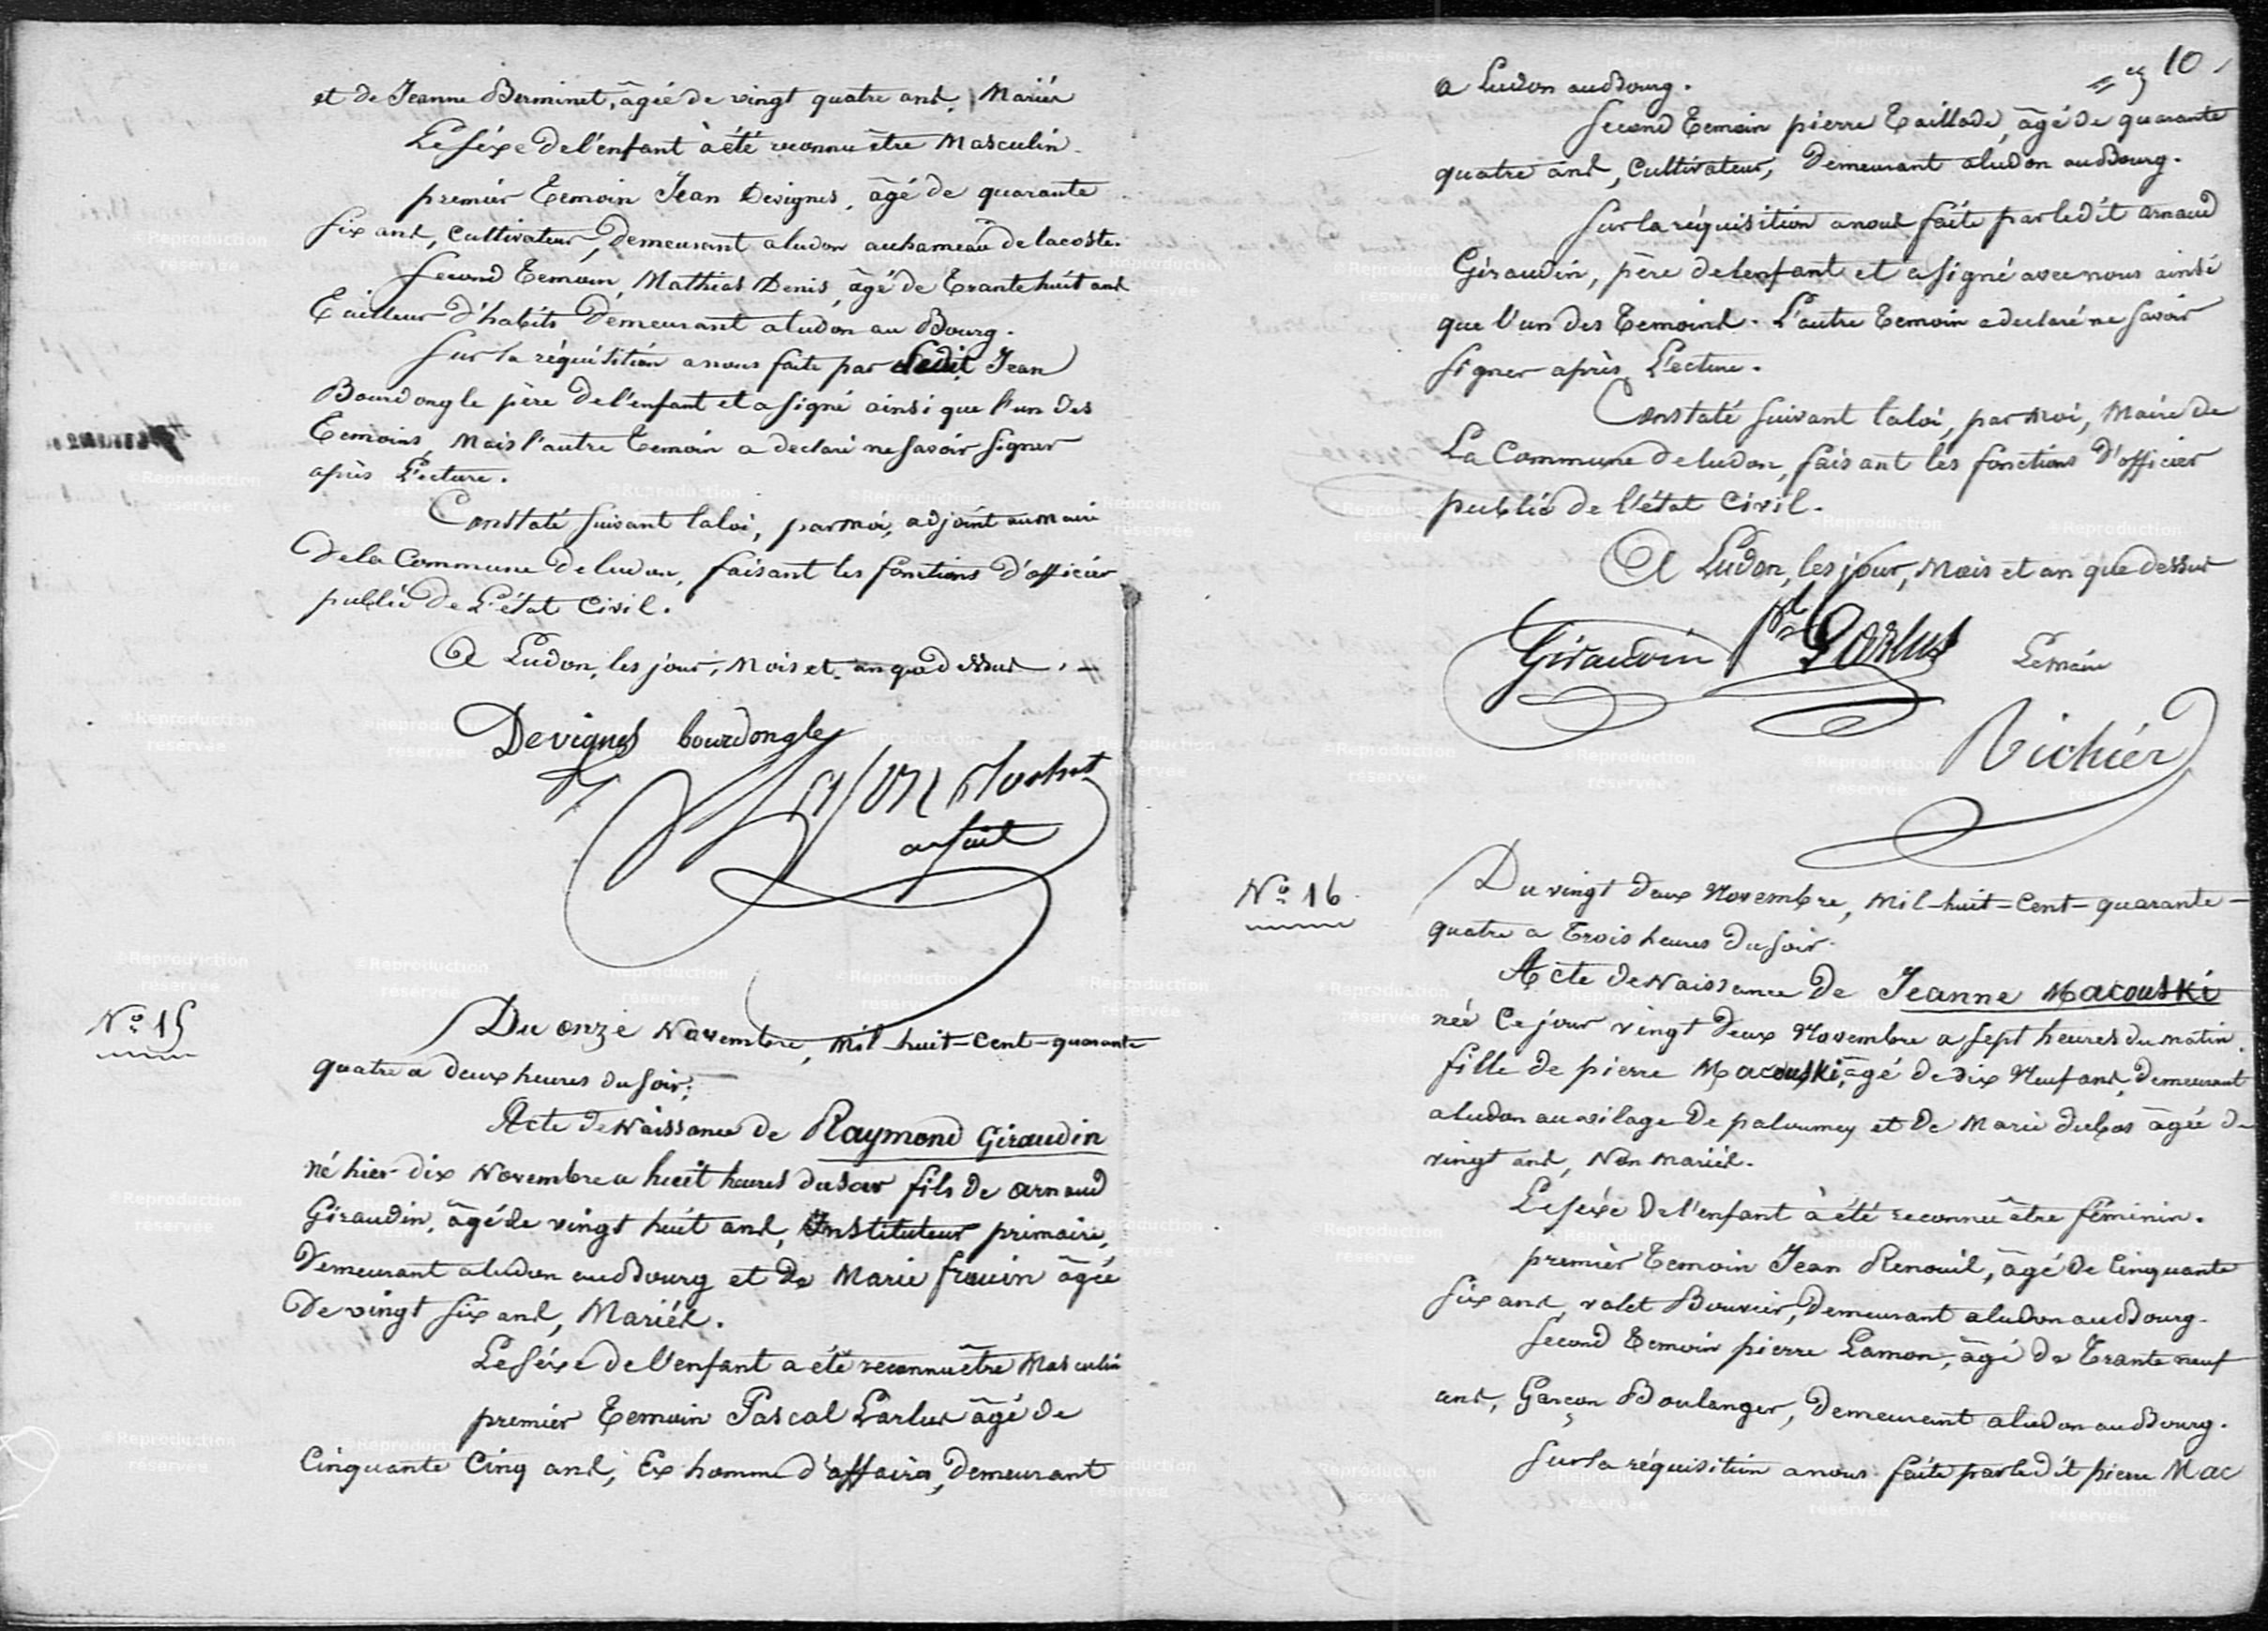 et de Jeanne Berminet, âgée de vingt quatre ans, Mariés
Le séxe de l'enfant à été reconnu être Masculin.
premiér Temoin Jean Devignes, âgé de quarante
six ans, Cultivateur, Demeurant a ludon au hameau de lacoste.
Second Temoin, Mathias Denis, âgé de Trante huit ans
Tailleur d'habits Demeurant a ludon au Bourg.
Sur la réquisition a nous faite par ledit Jean
Bourdongle père De l'enfant et a signé ainsi que l'un des
Temoins, Mais l'autre Temoin a declaré ne savoir signer
après Lécture.
Constaté suivant la loi, par moi, adjoint au maire
De la Commune De ludon, faisant les fonctions D'officiér
public De L'état Civil.
A Ludon, les jour, Mois et an que dessus
Devignes bourdongle
N° 15
Du onze Novembre, Mil-huit-Cent-quarante
quatre a deux heures du soir;
Acte De Naissance de Raymond Giraudin
né hier dix Novembre a huit heures du soir fils De arnaud
Giraudin, âgé de vingt huit ans, Instituteur primaire,
Demeurant a ludon au Bourg et de Marie frouin âgée
De vingt six ans, Mariés.
Le séxe de l'enfant a été reconnu être Masculin
premiér Temoin Pascal Larlus âgé de
Cinquante Cinq ans, Ex homme d'affaires, Demeurant
10
a Ludon au Bourg.
Second Temoin pierre Taillade, âgé de quarante
quatre ans, Cultivateur, Demeurant a ludon au Bourg.
Sur la réquisition a nous faite par ledit arnaud
Giraudin, père de lenfant et a signé avec nous ainsi
que l'un des Temoins. L'autre Temoin a declaré ne savoir
signer après Lécture.
Constaté suivant la loi, par Moi, Maire de
La Commune de ludon, faisant les fonctions D'officiér
public de l'état Civil.
A Ludon, les jour, Mois et an que dessus
Giraudin Larlus Le maire
Vichiér
N° 16
Du vingt deux Novembre, Mil-huit-Cent-quarante-
quatre a Trois heures Du soir.
Acte de Naissance De Jeanne Macouski
née Ce jour vingt Deux Novembre a sept heures du matin.
fille de pierre Macouski, âgé de dix Neuf ans, Demeurant
a ludon au vilage De paloumey et De Marie dubos âgée De
vingt ans, Non mariés.
Le séxe De l'enfant à été reconnu être féminin.
premièr Temoin Jean Renouil, âgé de Cinquante
six ans, valet Bouvier, Demeurant a ludon au Bourg.
Second Temoin pierre Lamon, âgé de Trante neuf
ans, Garçon Boulanger, Demeurant a ludon au Bourg.
Sur la réquisition a nous faite par ledit pierre Mac